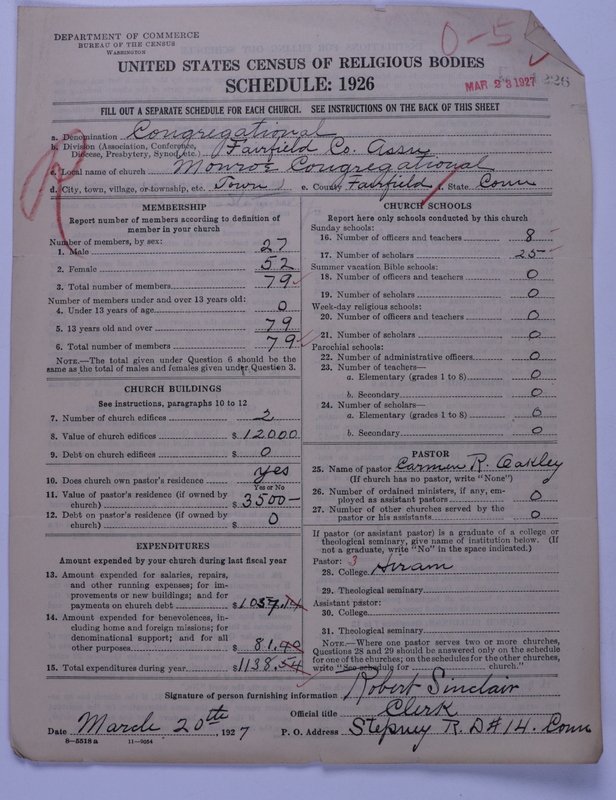 DEPARTMENT OF COMMERCE
BUREAU OF THE CENSUS
WASHINGTON
0-5
MAR 23 1927
UNITED STATES CENSUS OF RELIGIOUS BODIES
SCHEDULE: 1926
FILL OUT A SEPARATE SCHEDULE FOR EACH CHURCH. SEE INSTRUCTIONS ON THE BACK OF THIS SHEET
a. Denomination Congregational
b. Division (Association, Conference, Diocese, Presbytery, Synod, etc.) Fairfield Co. Assn
c. Local name of church Monroe Congregational
d. City, town, village, or township, etc. Town e. County Fairfield f. State Conn
MEMBERSHIP
Report number of members according to definition of
member in your church
Number of members, by sex:
1. Male 27
2. Female 52
3. Total number of members 79
Number of members under and over 13 years old:
4. Under 13 years of age 0
5. 13 years old and over 79
6. Total number of members 79
NOTE.—The total given under Question 6 should be the
same as the total of males and females given under Question 3.
CHURCH BUILDINGS
See instructions, paragraphs 10 to 12
7. Number of church edifices 2
8. Value of church edifices $12000
9. Debt on church edifices $ 0
10. Does church own pastor's residence yes
Yes or No
11. Value of pastor's residence (if owned by
church) $ 3500-
12. Debt on pastor's residence (if owned by
church) $ 0
EXPENDITURES
Amount expended by your church during last fiscal year
13. Amount expended for salaries, repairs,
and other running expenses; for im-
provements or new buildings; and for
payments on church debt $1057.14
14. Amount expended for benevolences, in-
cluding home and foreign missions; for
denominational support; and for all
other purposes $ 81.40
15. Total expenditures during year $1138.54
CHURCH SCHOOLS
Report here only schools conducted by this church
Sunday schools:
16. Number of officers and teachers 8
17. Number of scholars 25
Summer vacation Bible schools:
18. Number of officers and teachers 0
19. Number of scholars 0
Week-day religious schools:
20. Number of officers and teachers 0
21. Number of scholars 0
Parochial schools:
22. Number of administrative officers 0
23. Number of teachers—
a. Elementary (grades 1 to 8) 0
b. Secondary 0
24. Number of scholars—
a. Elementary (grades 1 to 8) 0
b. Secondary 0
PASTOR
25. Name of pastor Carmen R. Oakley
(If church has no pastor, write "None")
26. Number of ordained ministers, if any, em-
ployed as assistant pastors 0
27. Number of other churches served by the
pastor or his assistants 0
If pastor (or assistant pastor) is a graduate of a college or
theological seminary, give name of institution below. (If
not a graduate, write "No" in the space indicated.)
Pastor: 3
28. College Hiram
29. Theological seminary
Assistant pastor:
30. College
31. Theological seminary
NOTE.—Where one pastor serves two or more churches,
Questions 28 and 29 should be answered only on the schedule
for one of the churches; on the schedules for the other churches,
write "See schedule for church."
Signature of person furnishing information Robert Sinclair
Official title Clerk
Date March 20th, 1927 P. O. Address Stepney R.D#14. Conn
8—5518 a 11—9054